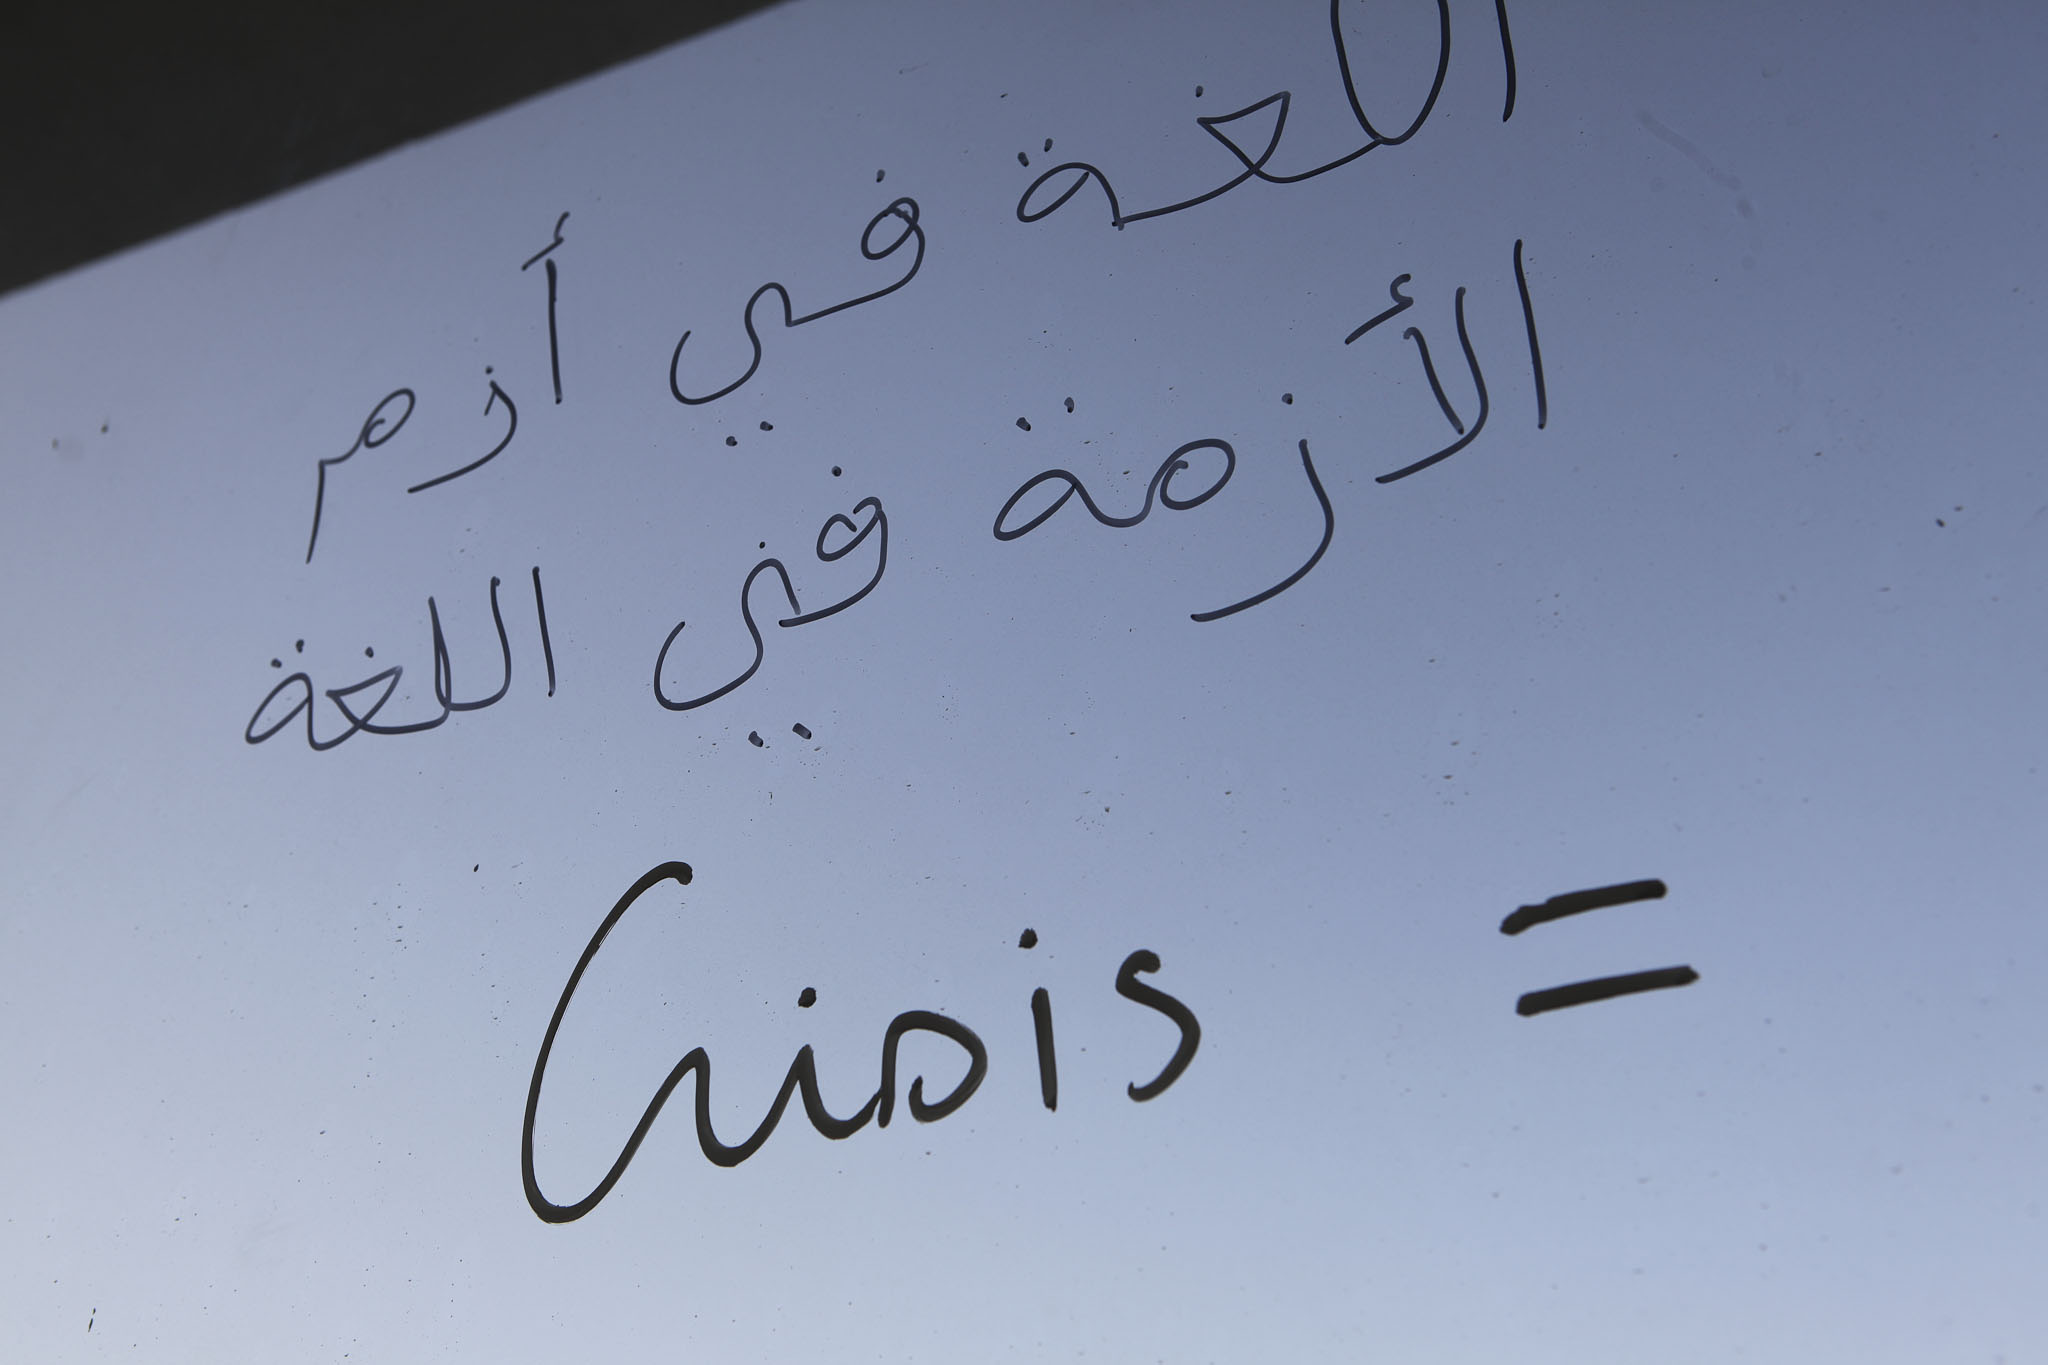 اللغة في أزم
الأزمة في اللغة
Crisis =